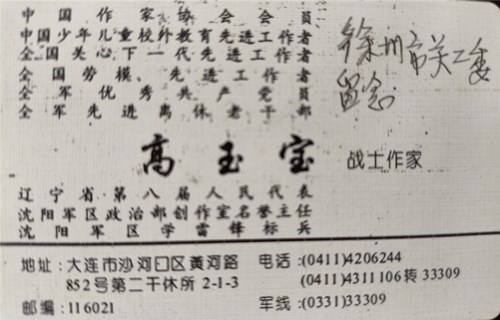 中国作家协会会员
中国少年儿童校外教育先进工作者
全国关心下一代先进工作者
全国劳模、先进工作者
全军优秀共产党员
全军先进离休老干部
徐州市关工委
留念
高玉宝
战士作家
辽宁省第八届人民代表
沈阳军区政治部创作室名誉主任
沈阳军区学雷锋标兵
地址:大连市沙河口区黄河路
852号第二干休所 2-1-3
邮编:116021
电话:(0411)4206244
(0411)4311106转 33309
军线:(0331)33309